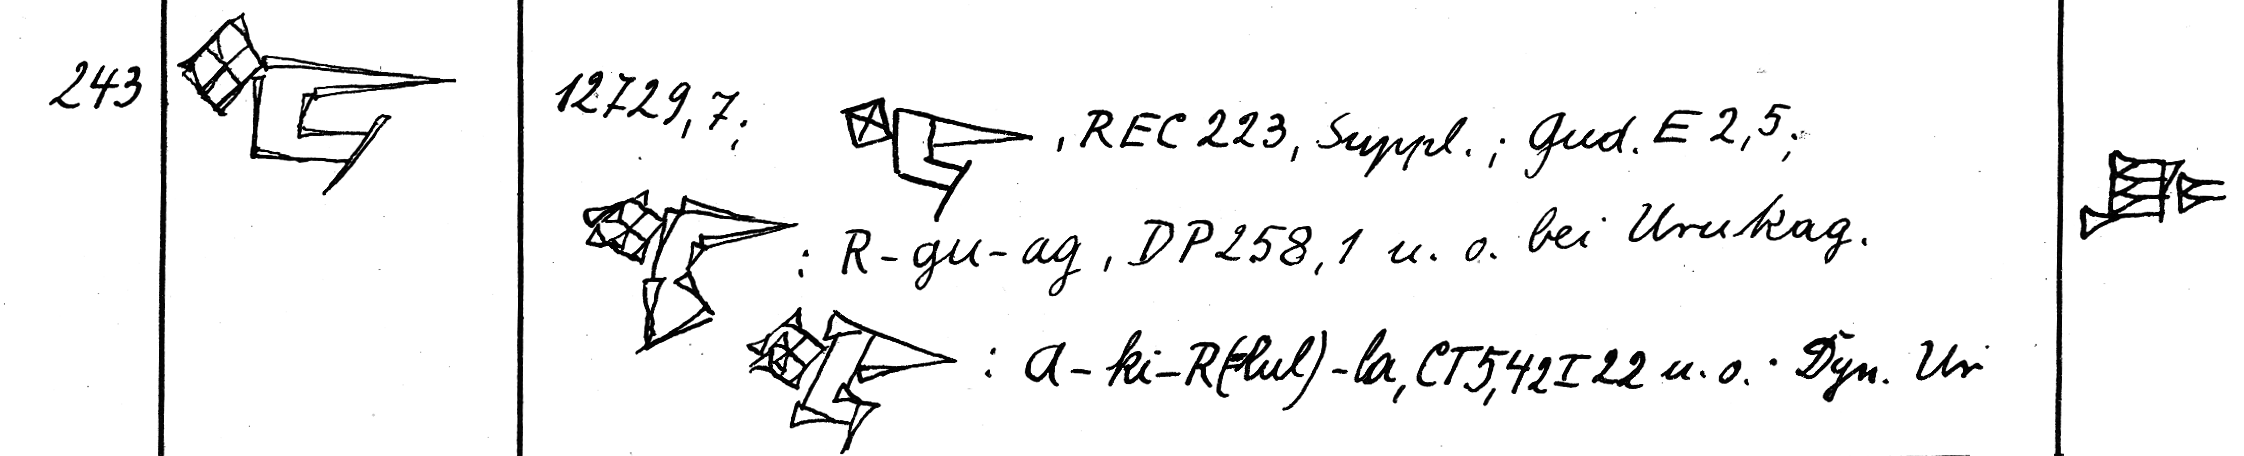 243 12729,7; , REC 223, Suppl.; Gud. E 2,5;
: R-gu-ag, DP 258,1 u. o. bei Urukag.
: a-ki-R(=lul)-la, CT 5,42 I 22 u. o. · Dyn. Ur